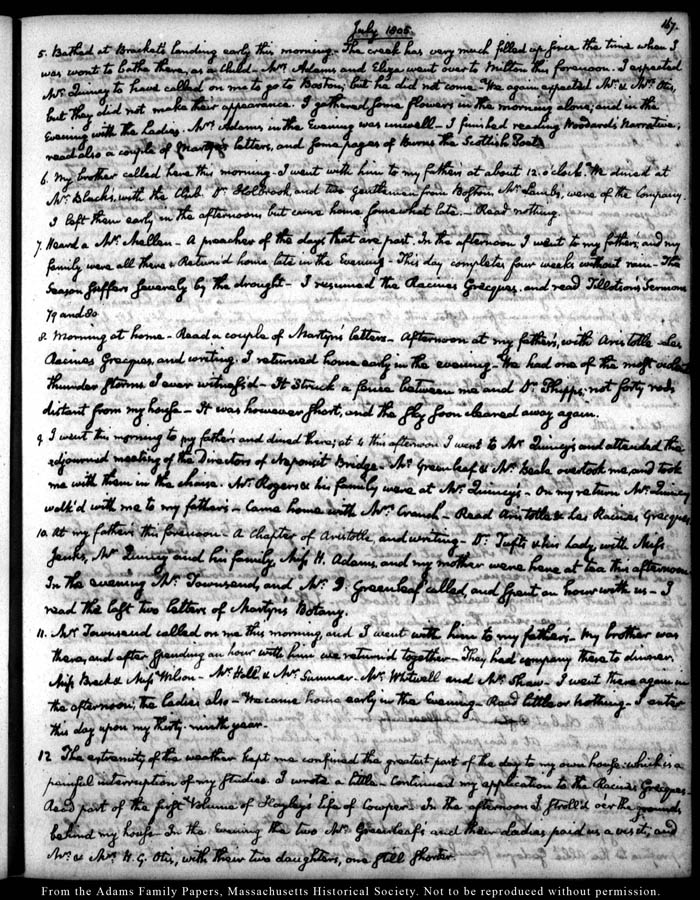 July 1805.
167.
5. Bathed at Brackets landing early this morning. The creek has very much filled up since the time when I
was wont to bathe there, as a child. Mrs. Adams and Eliza went over to Milton this forenoon. I expected
Mr. Quincy to have called on me to go to Boston; but he did not come. We again expected Mr. & Mrs. Otis,
but they did not make their appearance. I gathered some flowers in the morning alone; and in the
Evening with the Ladies. Mrs. Adams, in the Evening was unwell. I finished reading Woodard's Narrative;
read also a couple of Martyn's letters, and some pages of Burns the Scottish Poet.
6. My brother called here this morning. I went with him to my father's at about 12. o'clock. We dined at
Mr. Black's, with the Club. Dr. Holbrook, and two gentlemen from Boston, Mr. Lambs, were of the Company.
I left them early in the afternoon but came home somewhat late. Read nothing.
7. Heard a Mr. Mellen. A preacher of the days that are past. In the afternoon I went to my father's; and my
family were all there. Return'd home late in the Evening. This day completes four weeks without rain. The
Season suffers severely by the drought. I resumed the Racines Grecques, and read Tillotsons Sermons
79 and 80
8. Morning at home. Read a couple of Martyn's letters. Afternoon at my father's, with Aristotle Les
Racines Grecques, and writing. I returned home early in the evening. We had one of the most violent
thunder storms I ever witness'd. It struck a fence between me and Dr. Phipps; not forty rods
distant from my house. It was however short, and the sky soon cleared away again.
9. I went this morning to my father's and dined there; at 4 this afternoon I went to Mr. Quincy's and attended the
adjourned meeting of the Directors of Neponsit Bridge. Mr. Greenleaf & Mr. Beale overtook me, and took
me with them in the chaise. Mr. Rogers & his family were at Mr. Quincy's. On my return Mr. Quincy
walk'd with me to my father's. Came home with Mr. Cranch. Read Aristotle & Les Racines Grecques
10. At my father's this forenoon. A Chapter of Aristotle, and writing. Dr. Tufts & his Lady, with Miss
Jenks, Mr. Quincy and his family, Miss H. Adams, and my mother were here at tea this afternoon.
In the evening Mr. Townsend, and Mr. D. Greenleaf called, and spent an hour with us. I
read the last two letters of Martyn's Botany.
11. Mr. Townsend called on me this morning, and I went with him to my father's. My brother was
there, and after spending an hour with him we return'd together. They had company there to dinner,
Miss Beck & Miss Wilson. Mr. Hall & Mr. Sumner. Mr. Whitwell and Mr. Shaw. I went there again in
the afternoon; the ladies also. We came home early in the Evening. Read little or nothing. I enter
this day upon my thirty-ninth year.
12. The extremity of the weather kept me confined the greatest part of the day to my own house: which is a
painful interruption of my studies. I wrote a little. Continued my application to the Racines Grecques.
Read part of the first Volume of Hayley's Life of Cowper. In the afternoon I stroll'd over the grounds
behind my house. In the Evening the two Mr. Greenleaf's and their Ladies paid us a visit; and
Mr. & Mrs. H. G. Otis, with their two daughters, one still shorter.
From the Adams Family Papers, Massachusetts Historical Society. Not to be reproduced without permission.